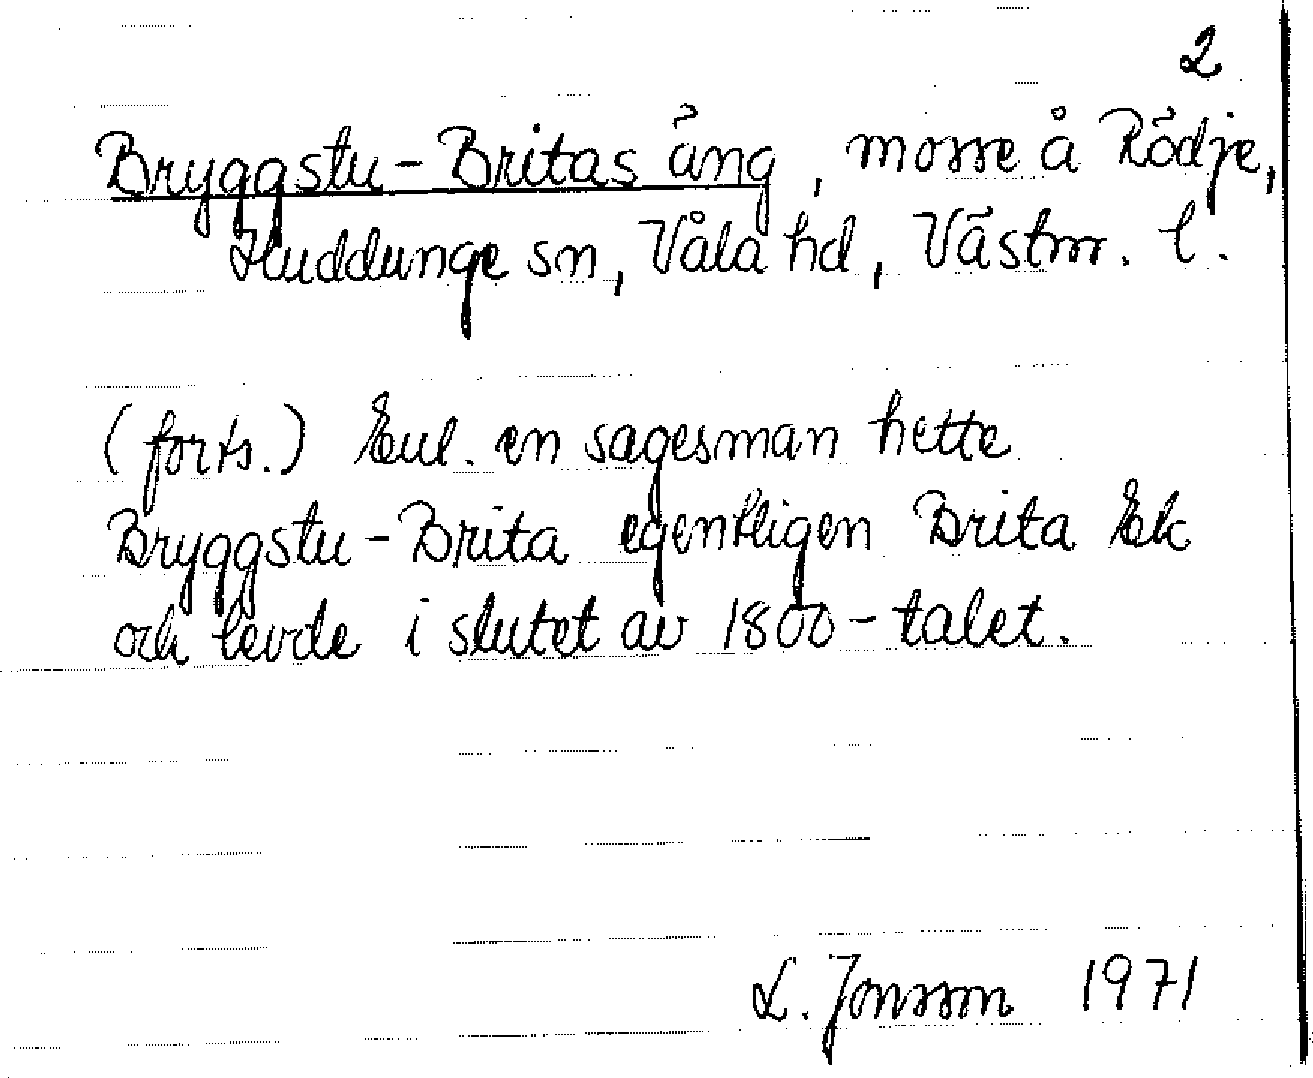 2
Bryggstu-Britas äng, mosse å Rödje,
Huddunge sn, Våla hd, Västm. l.
(forts.) Enl. en sagesman hette
Bryggstu-Brita egentligen Brita Ek
och levde i slutet av 1800-talet.
L. Jonsson 1971